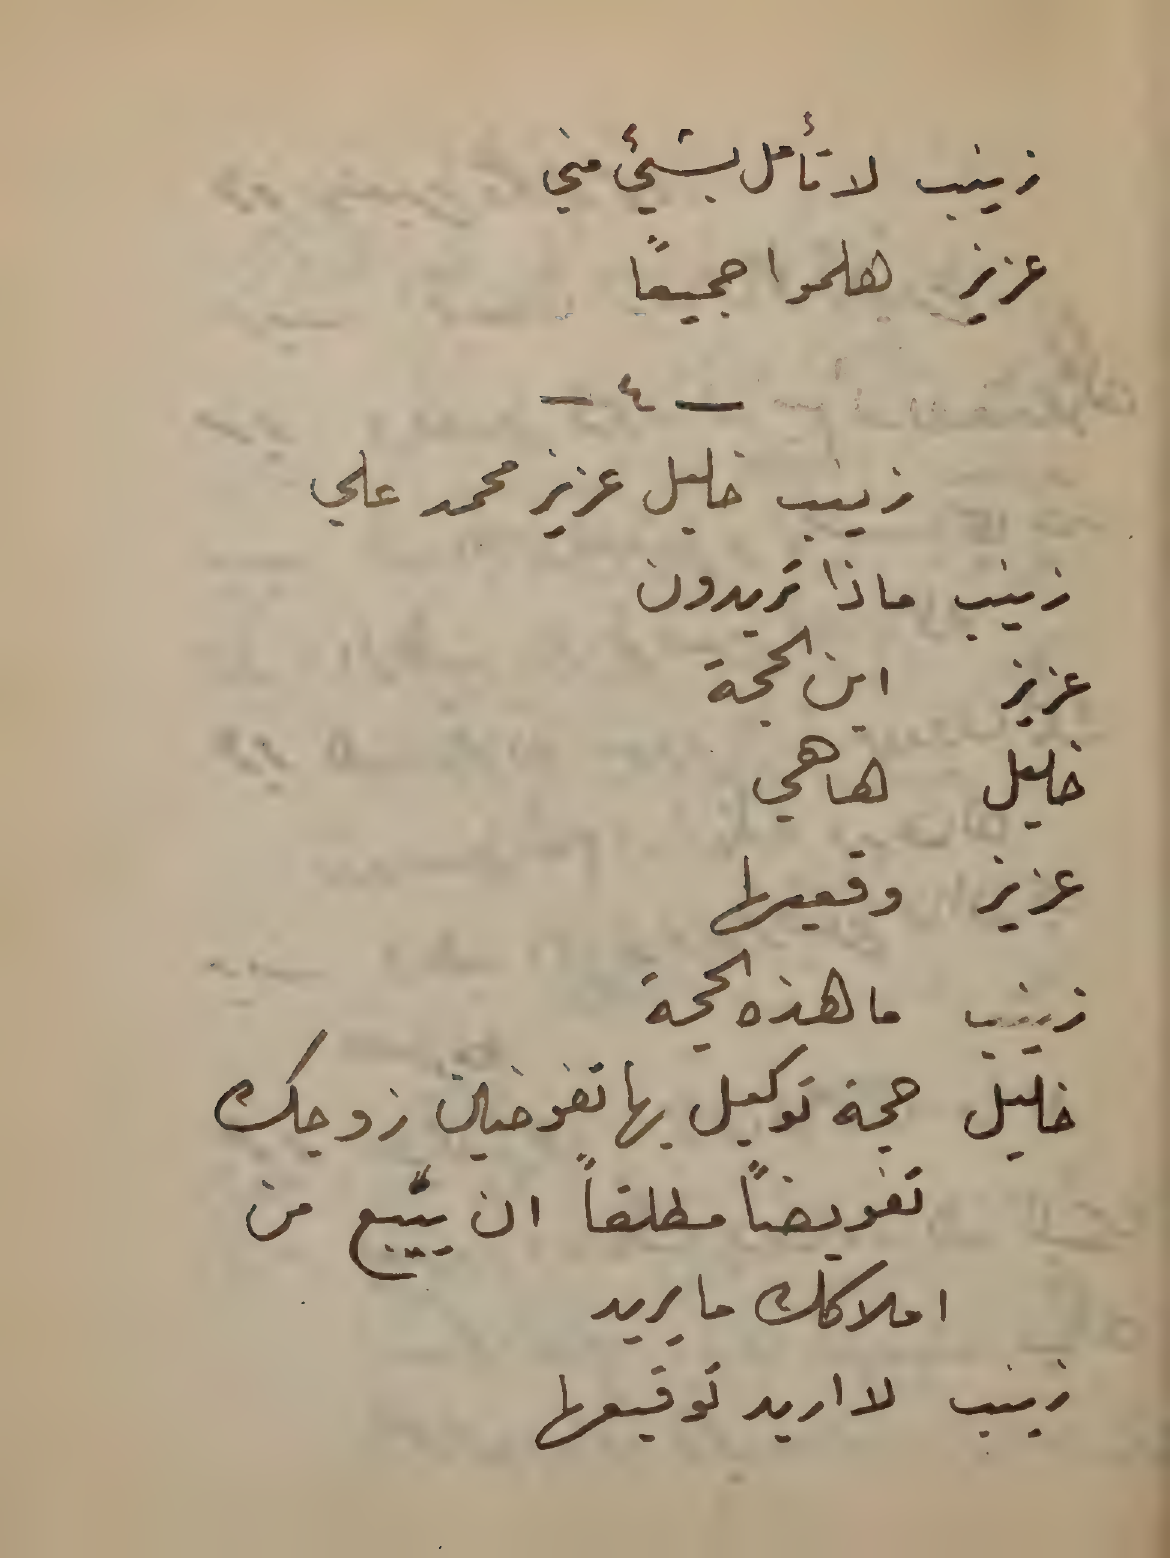 زينب لا تأمل بشيئ مني
عزيز هلموا جميعاً
— ٤ —
زينب خليل عزيز محمد علي
زينب ماذا تريدون
عزيز اين الحجة
خليل ها هي
عزيز وقعيها
زينب ما هذه الحجة
خليل حجة توكيل بها تفوضين زوجك
تفويضاً مطلقاً ان يبيع من
املاكك ما يريد
زينب لا اريد توقيعها